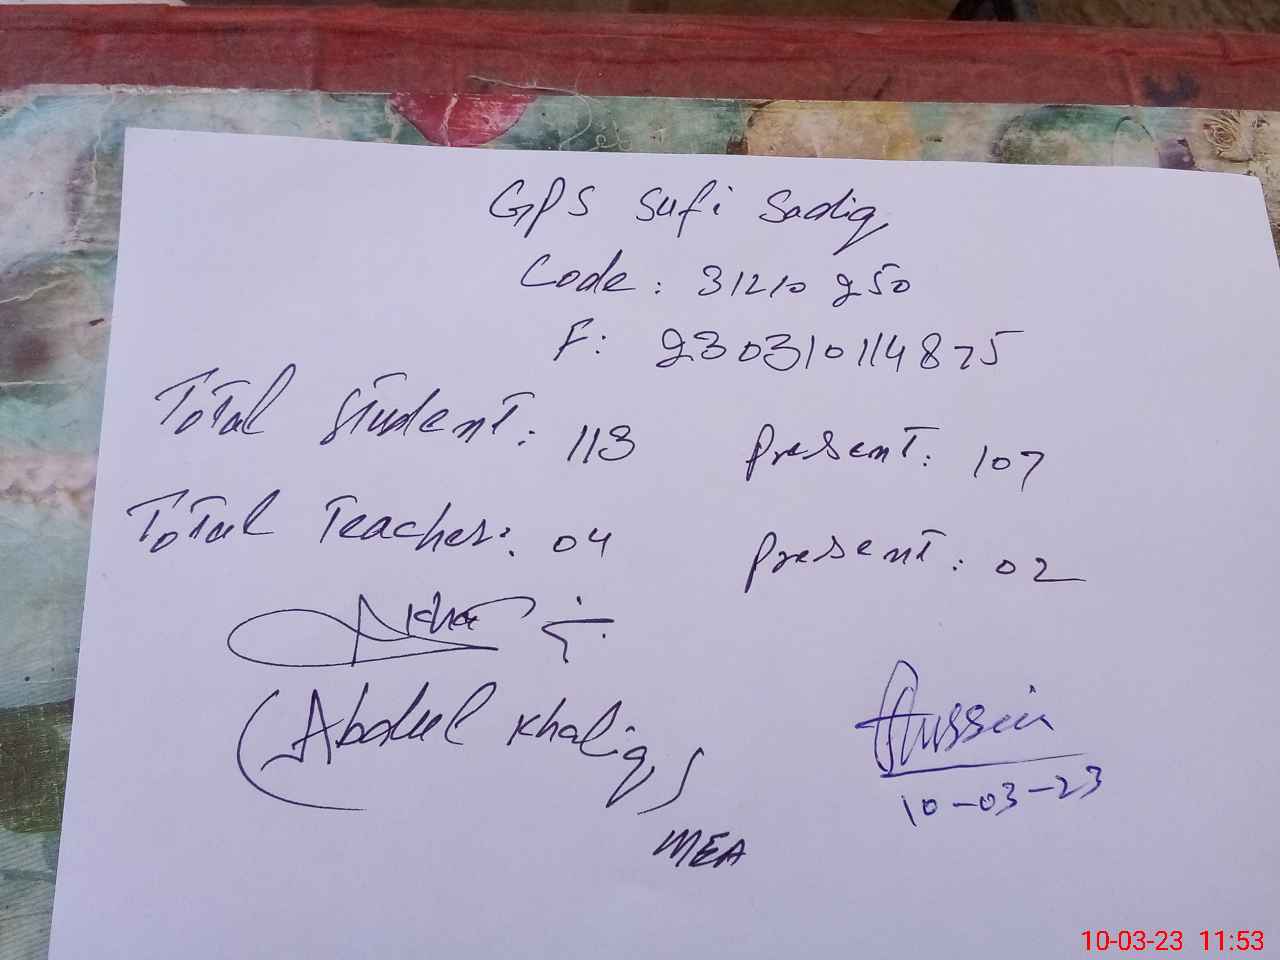 GPS Sufi Sadiq
Code: 31210250
F: 230310114825
Total Student: 113 Present: 107
Total Teacher: 04 Present: 02
(Abdul Khaliq)
Hussain
10-03-23
MEA
10-03-23 11:53